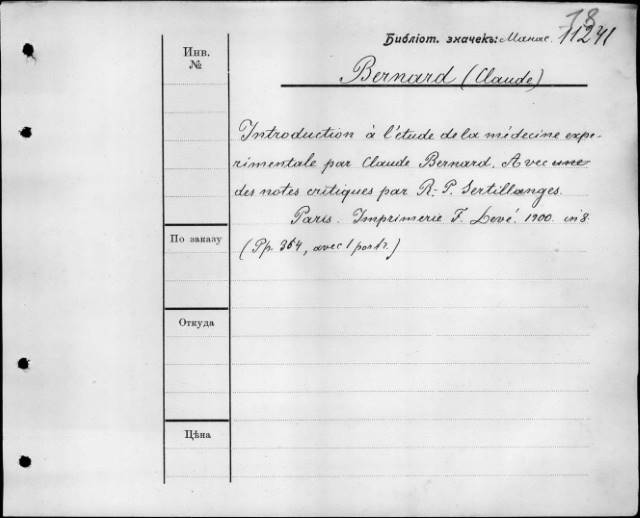 18
Библіот. значекъ: Манас. 11241
Инв.
№
Bernard (Claude)
Introduction à l'étude de la médecine expe-
rimentale par Claude Bernard. Avec une
des notes critiques par R.-P. Sertillanges.
Paris. Imprimerie F. Levé. 1900. in 8.
(Pp. 364, avec 1 portr.)
По заказу
Откуда
Цѣна